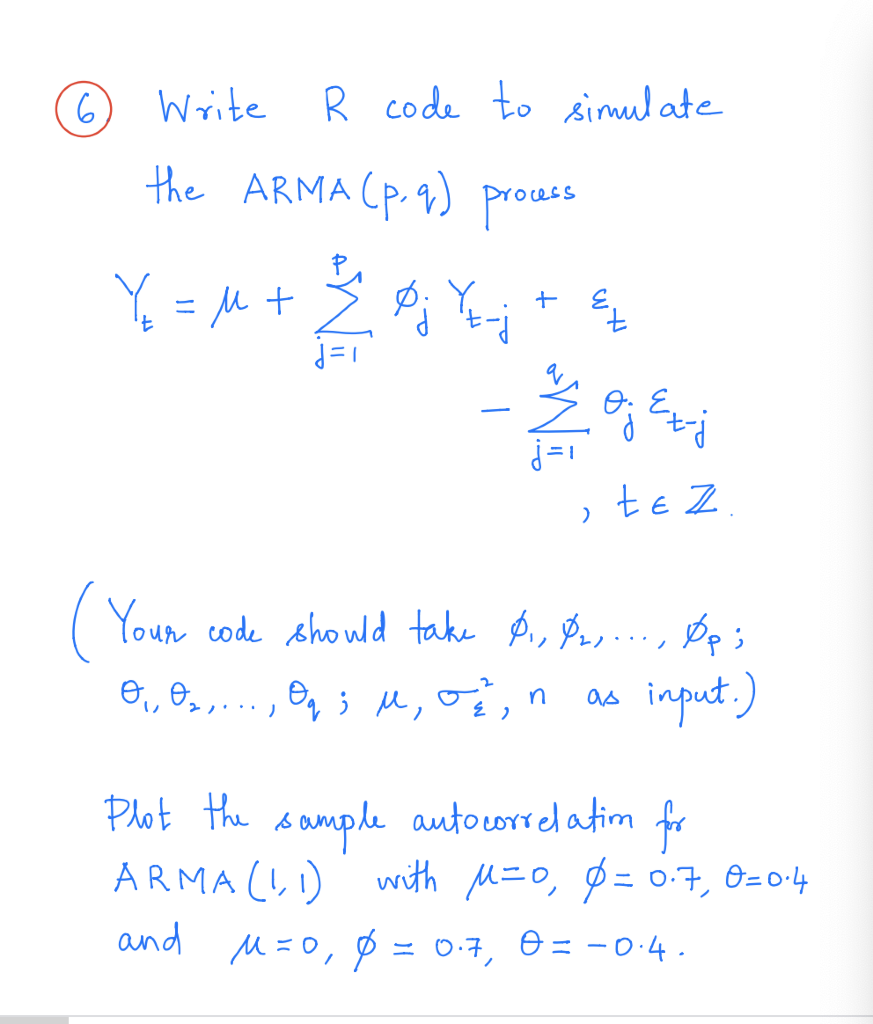 6 Write R code to simulate
the ARMA(p,q) process
Y_t = μ + Σ_{j=1}^{p} ø_j Y_{t-j} + ε_t
- Σ_{j=1}^{q} θ_j ε_{t-j}
, t ∈ ℤ.
(Your code should take ø_1, ø_2, ..., ø_p ;
θ_1, θ_2, ..., θ_q ; μ, σ_ε^2, n as input.)
Plot the sample autocorrelation for
ARMA(1,1) with μ=0, ø=0.7, θ=0.4
and μ=0, ø=0.7, θ=-0.4.